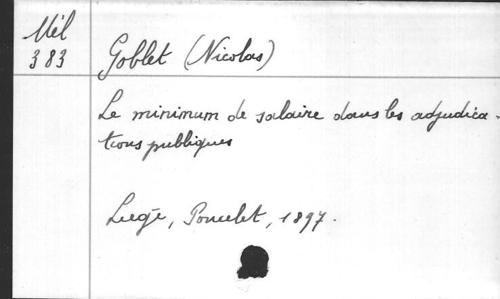 Mél
383
Goblet (Nicolas)
Le minimum de salaire dans les adjudica-
tions publiques
Liège, Poncelet, 1897.